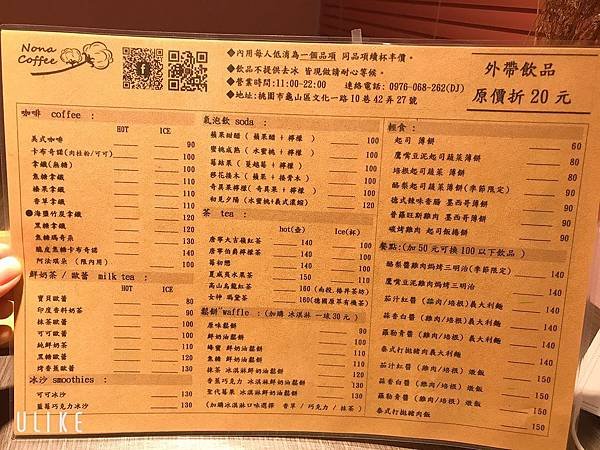 Nona
Coffee
◆內用每人低消為一個品項 同品項續杯半價。
◆飲品不提供去冰 皆現做請耐心等候。
◆營業時間:11:00-22:00 連絡電話: 0976-068-262(DJ)
◆地址:桃園市龜山區文化一路10巷42弄27號
外帶飲品
原價折 20 元
咖啡 coffee :
HOT ICE
美式咖啡 90
卡布奇諾(肉桂粉/可可) 100
拿鐵(無糖) 100
焦糖拿鐵
榛果拿鐵
香草拿鐵
●海鹽竹炭拿鐵
黑糖拿鐵
焦糖瑪奇朵
脆皮焦糖卡布奇諾
阿法琪朵 (限內用)
鮮奶茶 / 歐蕾 milk tea :
HOT ICE
寶貝歐蕾 80
印度香料奶茶 130
抹茶歐蕾 100
可可歐蕾 100
純鮮奶茶 110
黑糖歐蕾 120
烤香蕉歐蕾 130
冰沙 smoothies :
可可冰沙 130
藍莓巧克力冰沙 130
氣泡飲 soda :
蘋果甜醋 ( 蘋果醋 + 檸檬 ) 100
蜜桃成熟 ( 水蜜桃 + 檸檬 ) 100
莓結果 ( 蔓越莓 + 檸檬 ) 100
移花接木 ( 蘋果 + 接骨木 ) 100
奇異果檸檬( 奇異果 + 檸檬 ) 100
初見夕陽 (水蜜桃+義式濃縮) 120
茶 tea :
hot(壺) Ice(杯)
唐寧大吉嶺紅茶 140 100
唐寧伯爵檸檬茶 140 100
莓初戀 140 100
夏威夷水果茶 150 100
高山烏龍紅茶
女神 瑪黛茶
鬆餅"waffle :(加購 冰淇淋 一球30元 )
原味鬆餅 90
鮮奶油鬆餅 100
蜂蜜 鮮奶油鬆餅 110
焦糖 鮮奶油鬆餅 110
抹茶 冰淇淋鮮奶油鬆餅 130
香蕉巧克力 冰淇淋鮮奶油鬆餅 130
聖代莓果 冰淇淋鮮奶油鬆餅 130
(加購冰淇淋口味選擇 香草 / 巧克力 / 抹茶 )
輕食:
起司 薄餅 60
鷹嘴豆泥起司蔬菜薄餅 80
培根起司蔬菜 薄餅 80
酪梨起司蔬菜 薄餅(季節限定) 90
德式辣味香腸 墨西哥薄餅 90
普羅旺斯雞肉 墨西哥薄餅 90
碳烤雞肉 起司飯捲餅 90
餐點:(加 50 元可換 100 以下飲品 )
酪梨醬雞肉焗烤三明治(季節限定)
鷹嘴豆泥雞肉焗烤三明治
茄汁紅醬 (雞肉/培根)義大利麵 150
蒜香白醬 (雞肉/培根)義大利麵 150
羅勒青醬 (雞肉/培根)義大利麵 150
泰式打拋豬肉義大利麵 150
茄汁紅醬 (雞肉/培根) 燉飯 150
蒜香白醬 (雞肉/培根) 燉飯 150
羅勒青醬 (雞肉/培根) 燉飯 150
泰式打拋豬肉飯 150
ULIKE